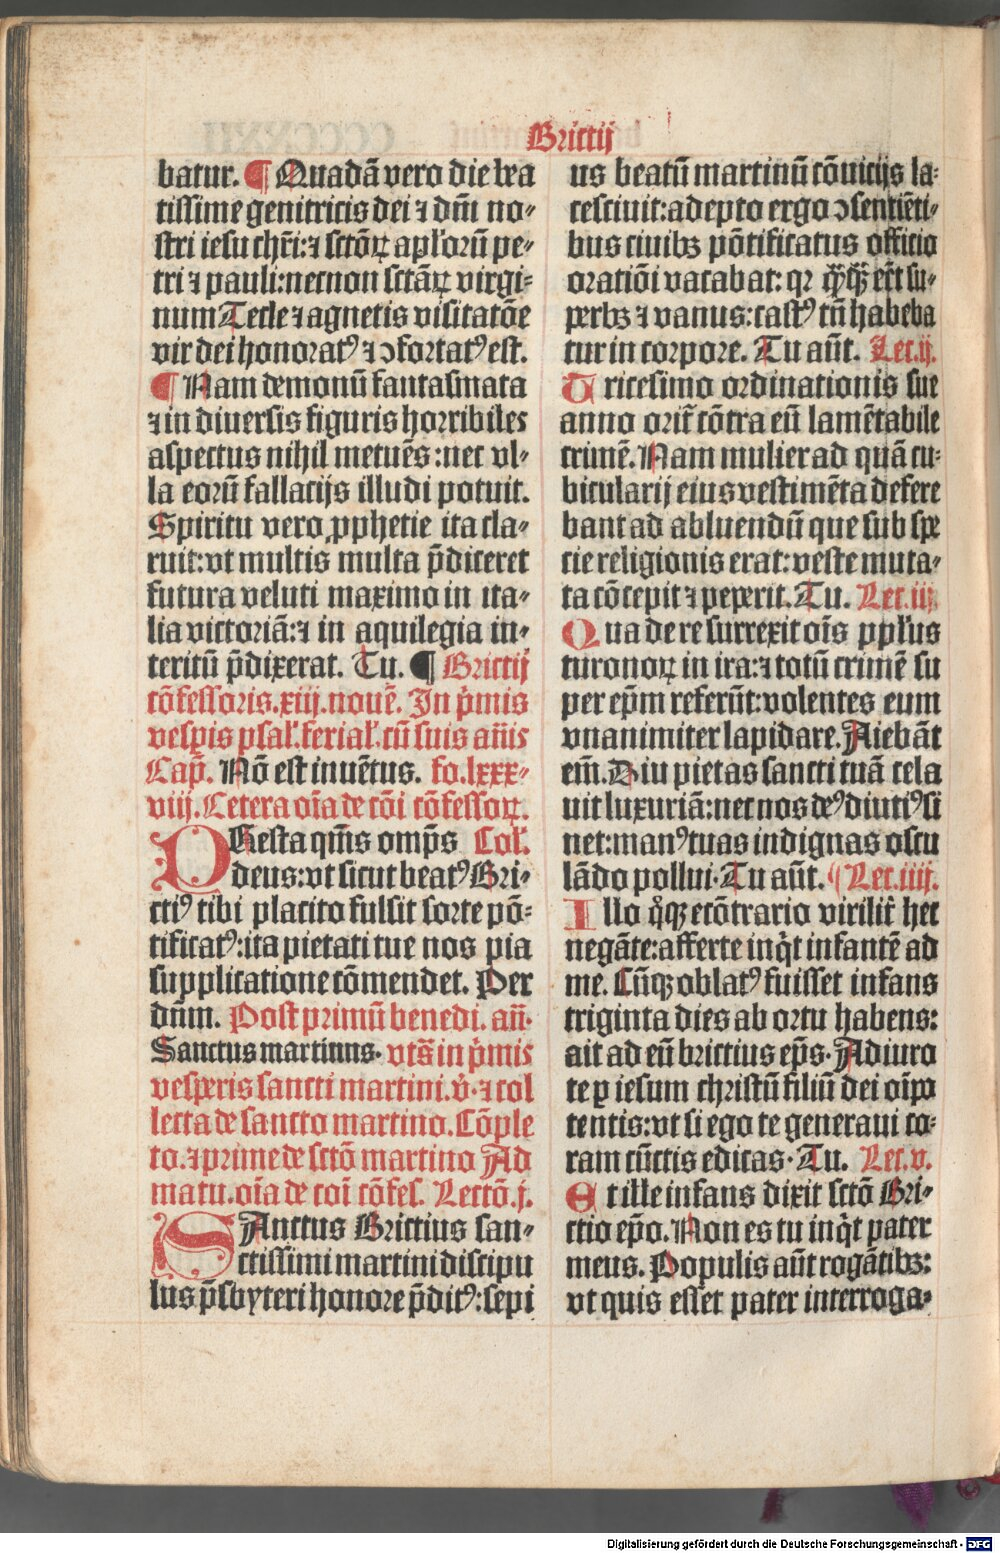 Brictij
batur. ¶ Quadā vero die bea
tissime genitricis dei ⁊ dn̄i no⸗
stri iesu chr̄i:⁊ sctō⁊ꝝ apl'oꝝū pe⸗
tri ⁊ pauli:necnon sctāꝝ virgi⸗
num Tecle ⁊ agnetis visitatōe
vir dei honoratꝰ ⁊ ↄfortatꝰ est.
¶ Nam demonū fantasmata
⁊ in diuersis figuris horribiles
aspectus nihil metuēs:nec vl⸗
la eorū fallacijs illudi potuit.
Spiritu vero ꝓphetie ita cla⸗
ruit:vt multis multa p̄diceret
futura veluti maximo in ita⸗
lia victoriā:⁊ in aquilegia in⸗
teritū p̄dixerat. Tu. ¶ Brictij
cōfessoris.xiij.nouē. In p̄mis
vesꝑis psal'.ferial'.cū suis an̄is
Cap̄. Nō est inuētus. fo.lxxx⸗
viij. Cetera oīa de cōi cōfessoꝝ.
Gesta qm̄s omp̄s Col'.
deus:vt sicut beatꝰ Bri⸗
ctiꝰ tibi placito fulsit sorte pō⸗
tificatꝰ:ita pietati tue nos pia
supplicatione cōmendet. Per
dn̄m. Post primū benedi. an̄.
Sanctus martinus. vts̄ in p̄mis
vesperis sancti martini.v̄.⁊ col
lecta de sancto martino. Cōple
to.⁊ prime de sctō martino Ad
matu.oīa de coi cōfes. Lectō.j.
SAnctus Brictius san⸗
ctissimi martini discipu
lus p̄sbyteri honore p̄ditꝰ:sepi
us beatū martinū cōuicijs la⸗
cesciuit:adepto ergo ↄsentiēti⸗
bus ciuibꝫ pōtificatus officio
oratiōi vacabat: qꝛ qꝫqꝫ er̄t su⸗
perbꝫ ⁊ vanus:castꝰ tn̄ habeba
tur in corpore. Tu aūt. Lec.ij.
Tricesimo ordinationis sue
anno orit̄ cōtra eū lamētabile
crimē. Nam mulier ad quā cu⸗
bicularij eius vestimēta defere
bant ad abluendū que sub spe
cie religionis erat:veste muta⸗
ta cōcepit ⁊ peperit. Tu. Lec.iij.
Qua de re surrexit oīs ppl'us
turonoꝝ in ira:⁊ totū crimē su
per ep̄m referūt:volentes eum
vnanimiter lapidare. Aiebāt
em̄. Diu pietas sancti tuā cela
uit luxuriā:nec nos deꝰ diutiꝰ si
net:manꝰ tuas indignas oscu
lādo pollui. Tu aūt. ¶ Lec.iiij.
Illo qͦqꝫ ecōtrario virilit̄ hec
negāte:afferte inqͥt infantē ad
me. Cūqꝫ oblatꝰ fuisset infans
triginta dies ab ortu habens:
ait ad eū brictius ep̄s. Adiuro
te ꝑ iesum christū filiū dei oīpo
tentis:vt si ego te generaui co⸗
ram cūctis edicas. Tu. Lec.v.
Et ille infans dixit sctō Bri⸗
ctio ep̄o. Non es tu inqͥt pater
meus. Populis aūt rogātibꝫ:
vt quis esset pater interroga⸗
Digitalisierung gefördert durch die Deutsche Forschungsgemeinschaft - DFG